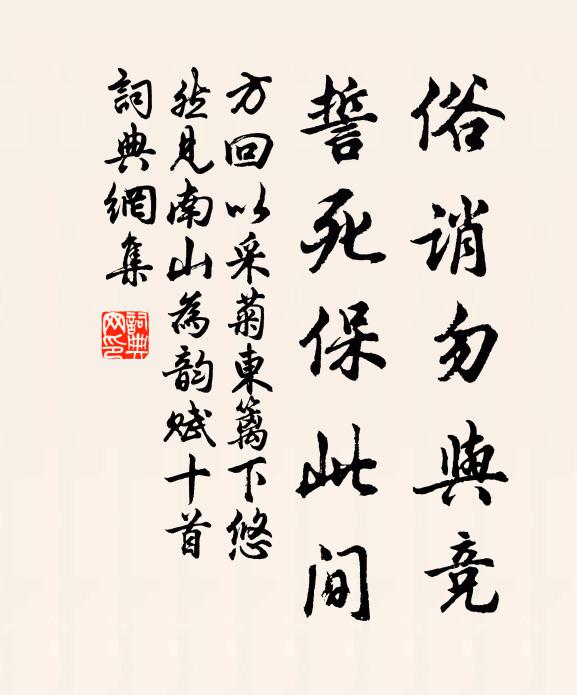 俗誚勿與竞
誓死保此间
方回以采菊東篱下悠
然見南山為韵赋十首
詞典網集
詞典网印